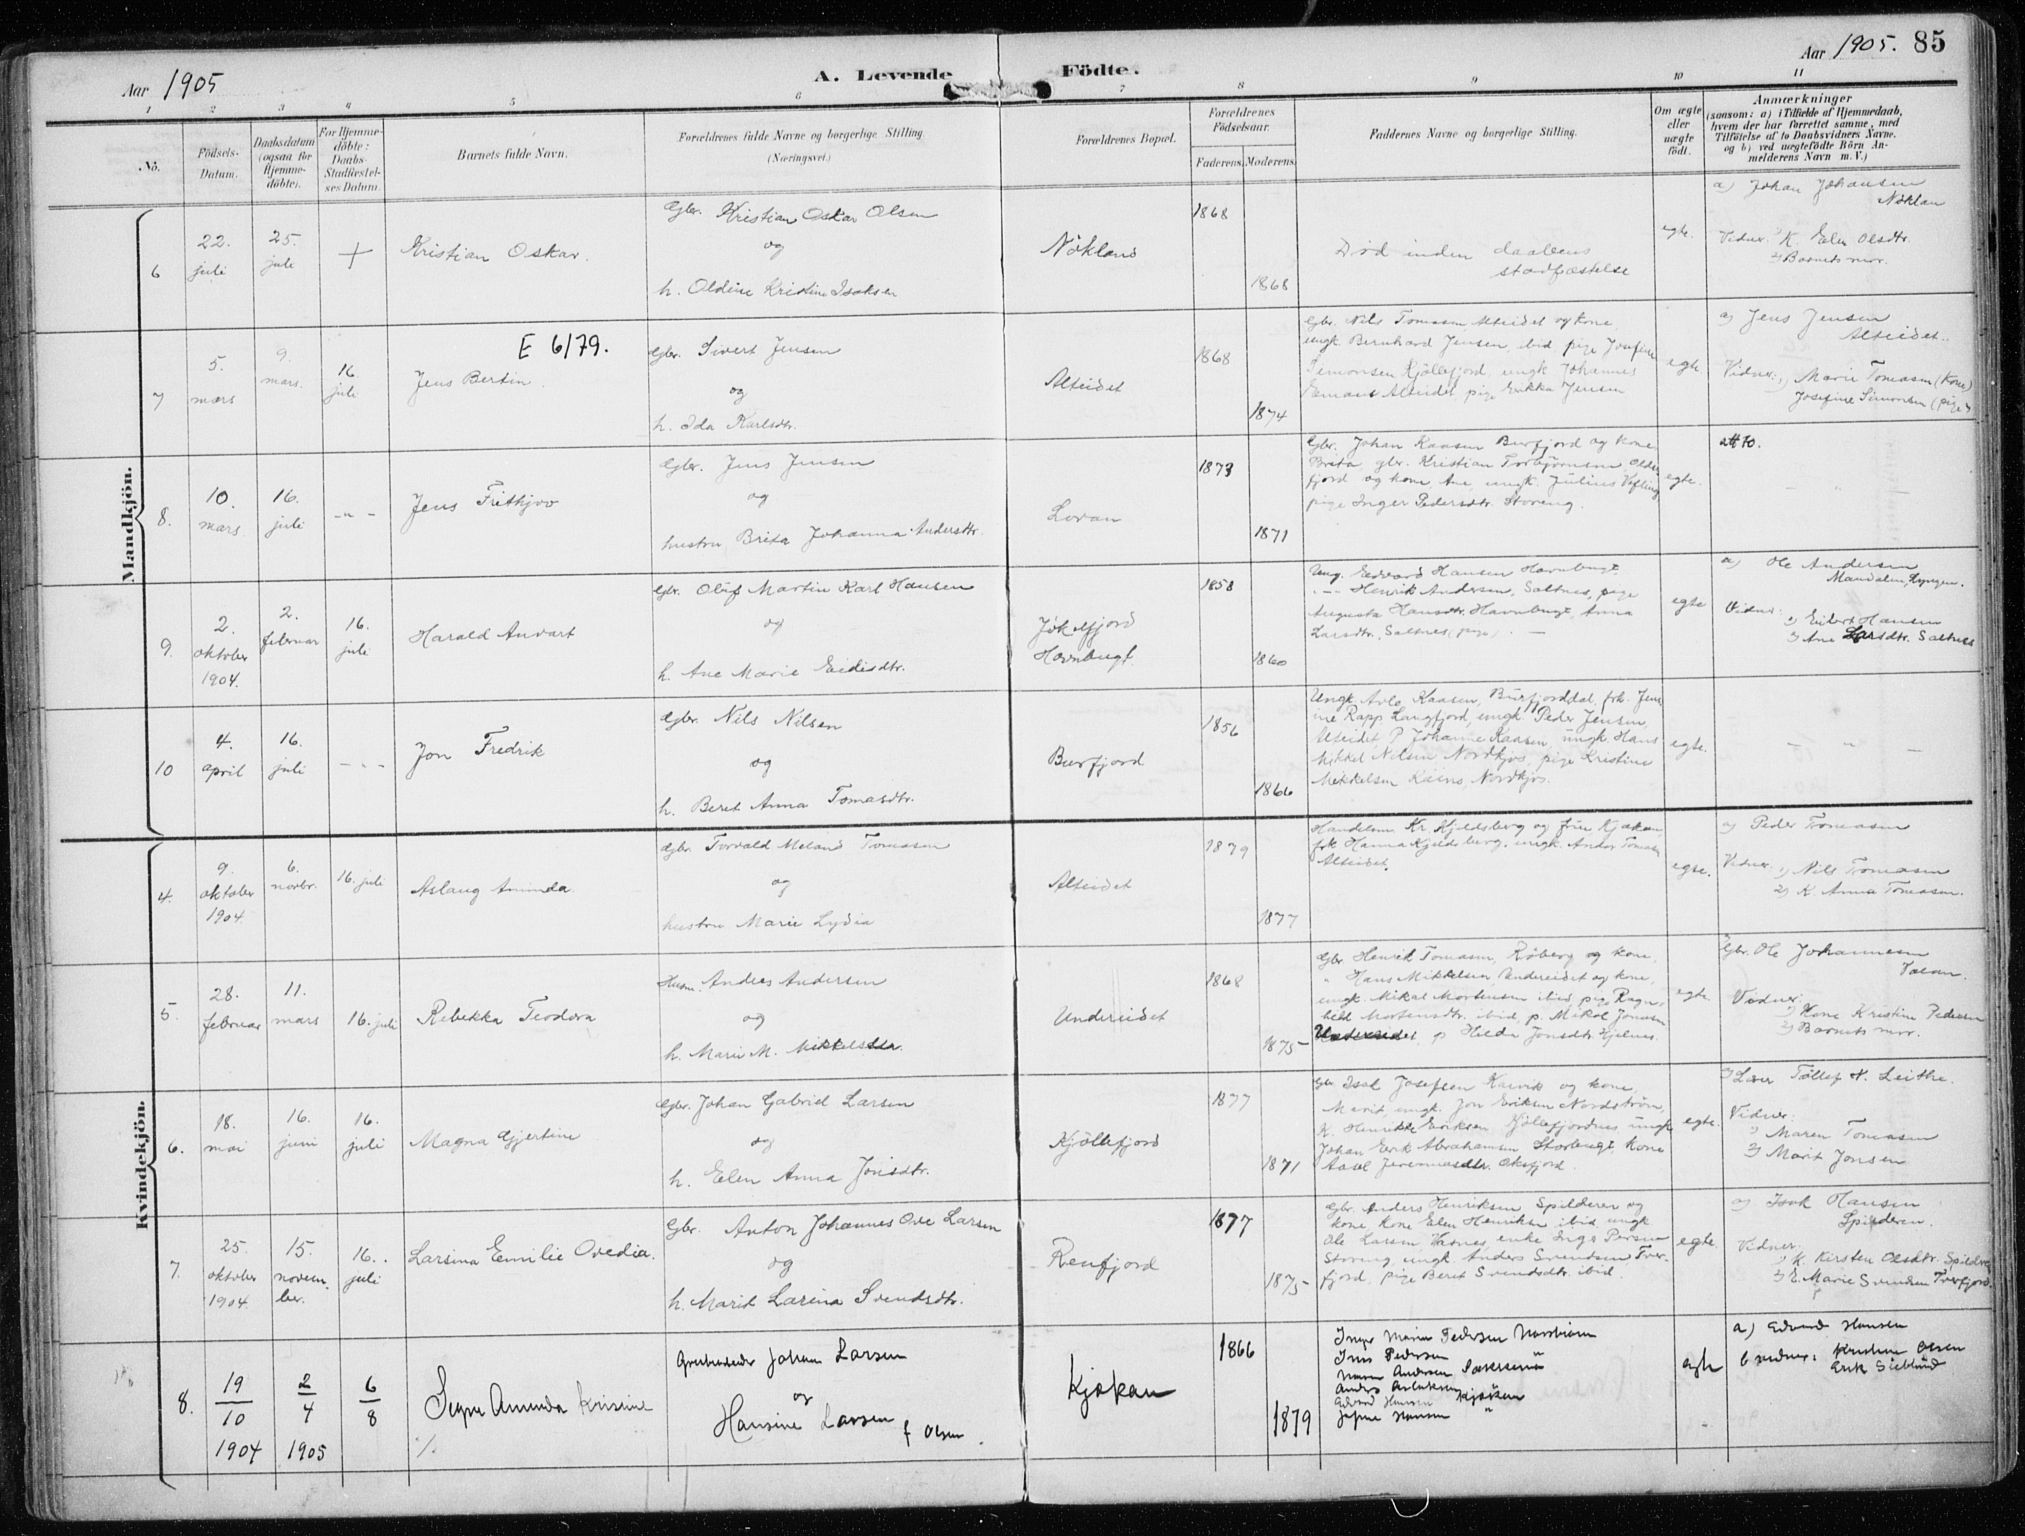 Aar 1905
A. Levende Födte.
Aar 1905. 85
1 2 3 4 5 6 7 8 9 10 11
No.
Födsels-Datum.
Daabsdatum (ogsaa for Hjemme-döbte).
For Hjemme-döbte: Daabs-Stadfæstel-ses Datum.
Barnets fulde Navn.
Forældrenes fulde Navne og borgerlige Stilling
(Næringsvei.)
Forældrenes Bopæl.
Forældrenes Födselsaar.
Faderens. Moderens.
Faddernes Navne og borgerlige Stilling.
Om ægte eller uægte födt.
Anmærkninger
(saasom: a) i Tilfælde af Hjemmedaab, hvem der har forrettet samme, med Tilföielse af to Daabsvidners Navne. og b) ved uægtefödte Börn An-melderens Navn m. V.)
Mandkjön.
6
22. juli
25. juli
+
Kristian Oskar.
Gbr. Kristian Oskar Olsen
og
h. Oldine Kristine Isaksen
Nökland
1868
1868
Död inden daabens
stadfæstelse
egte.
a) Johan Johansen
Nöklan
Vidner: K. Elen Olsdtr.
2) Barnets mor.
7
5. mars
9. mars.
16 juli
E 6/79.
Jens Bertin.
Gbr. Sivert Jensen
og
h. Ida Karlsdtr.
Alteidet
1868
1874
Gbr. Nils Tomasen, Alteidet og kone,
ungk. Bernhard Jensen, ibid, pige Josefine
Simonsen Kjöllefjord, ungk. Johannes
Alteidet, pige Erikka Jensen
egte
a) Jens Jensen
Alteidet.
Vidner: 1) Marie Tomasen (kone)
Josefine Simonsen (pige)
8.
10. mars
16. juli
- " -
Jens Frithjov
Gbr. Jens Jensen
og
hustru Brita Johanna Andersdtr.
Lovan
1873
1871
Gbr. Johan Kaasen Burfjord og kone
Brita gbr. Kristian Torbjörnsen Older-
fjord og kone, Ane, ungk. Julius
pige Inger Pedersdtr. Storeng.
egte.
- " -
9.
2. oktober 1904.
2. februar
16. juli
Harald Anvart
Gbr. Oluf Martin Karl Hansen
og
h. Ane Marie Eidisdtr.
Jökelfjord
Havnbugt.
1858
1860
Ung. Edvard Hansen Havnbugt,
- " - Henrik Andersen, Saltnes, pige
Augusta Hansdtr. Havnbugt, Anna
Larsdtr, Saltnes (pige). —
egte
a) Ole Andersen
Mandalen, Lyngen.
Vidner: 1) Eilert Hansen
2) Ane Larsdtr. Saltnes
10
4. april
16. juli
- " -
Jon Fredrik
Gbr. Nils Nilsen
og
h. Beret Anna Tomasdtr.
Burfjord
1856
1866
Ungk. Kaasen, Burfjorddal, frk. Jen-
ine Rapp Langfjord, ungk. Peder Jensen,
Alteidet P. Johanne Kaasen, ungk. Hans
Mikkel Nilsen Nordkjos, pige Kristine
Mekkelsen Nordkjos.
egte.
- " -
Kvindekjön.
4.
9. oktober 1904.
6. novbr.
16. juli
Aslaug Aminda
Gbr. Torvald Meland Tomasen
og
hustru Marie Lydia
Alteidet
1879
1877
Handelsm. Kr. Kjeldsberg og frue Kjækan,
frk Hanna Kjeldsberg, ungk. Tomasen
Alteidet.
egte.
a) Peder Tomasen
Vidner: 1) Nils Tomasen
2) K. Anna Tomasen.
5.
28. februar
11. mars
16. juli
Rebekka Teodora
Husm. Andreas Andersen
og
h. Marie M. Mikkelsdtr.
Undereidet
1868
1875-
Gbr. Henrik Tomasen, Röberg og kone,
" Hans Mikkelsen, Undereidet og kone,
ungk. Mikal Mortensen ibid, pige Ragn-
hild Mortensdtr. ibid, p. Mikol Jonasen
Undereidet, p Hilda Jonsdtr. Kjelnes.
egte
Gbr. Ole Johannesen
Vidner:
1) Kone Kristine Pedersen
2) Barnets mor.
6.
18. mai
16. juni
16. juli
Magna Gjertine
Gbr. Johan Gabriel Larsen
og
h. Elen Anna Jonsdtr.
Kjöllefjord
1877
1871
Gbr Isak Josefsen Kaivik og kone,
Marit, ungk. Jon Eriksen Nordström,
K. Henrikke Eriksen, Kjöllefjordnes ungk
Johan Erik Abrahamsen Storbugt, kone
Jeremiasdtr. Oksfjord
egte.
a) Lærer Tollef N. Leithe.
Vidner:
1) Maren Tomasen
2) Marit Jonsen
7.
25. oktober 1904.
15. novem-ber.
16. juli
Larsina Emilie Ovedia.
Gbr. Anton Johannes Ove Larsen
og
h. Marit Larsina Svendsdtr.
Reinfjord
1877
1875-
Gbr. Anders Henriksen Spilderen og
kone, kone Elen Henriksen ibid, ungk
Ole Larsen, Vasnes, enke Inge
Storeng, ungk. Anders Svendsen Tver-
fjord, pige Beret Svendsdtr. ibid.
egte.
a) Isak Hansen
Spilderen.
Vidner:
1) K. Kirsten Olsdtr. Spildren
2) E. Marie Svendsen Tverfjord.
8.
19/10 1904
2/4 1905
6/8
Signe Amanda Kristine
%
Gaardarbeider Johan Larsen
og
Hansine Larsen f Olsen.
Kjækan
1866
1879
Inger Marie Pedersen
Jens Pedersen
Maren Andersen
Anders
Edvard Hansen Kjækan
Hansen "
egte
a) Edvard Hansen
b vidner: Kristine Olsen
Erik